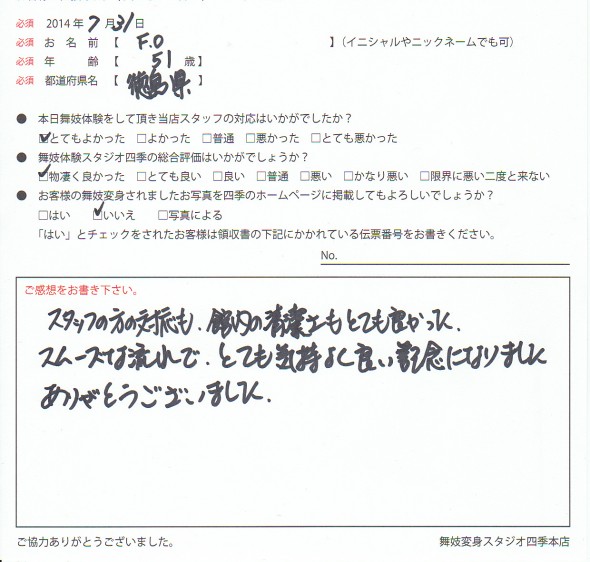 必須 2014年7月31日
必須 お名前【 F.O 】(イニシャルやニックネームでも可)
必須 年齢【 51 歳】
必須 都道府県名【 徳島県 】
● 本日舞妓体験をして頂き当店スタッフの対応はいかがでしたか?
☑とてもよかった □よかった □普通 □悪かった □とても悪かった
● 舞妓体験スタジオ四季の総合評価はいかがでしょうか?
☑物凄く良かった □とても良い □良い □普通 □悪い □かなり悪い □限界に悪い二度と来ない
● お客様の舞妓変身されましたお写真を四季のホームページに掲載してもよろしいでしょうか?
□はい ☑いいえ □写真による
「はい」とチェックをされたお客様は領収書の下記にかかれている伝票番号をお書きください。
No.
ご感想をお書き下さい。
スタッフの方の対応も、館内の清潔さもとても良かった、
スムーズな流れで、とても気持よく良い記念になりました
ありがとうございました.
ご協力ありがとうございました。
舞妓変身スタジオ四季本店